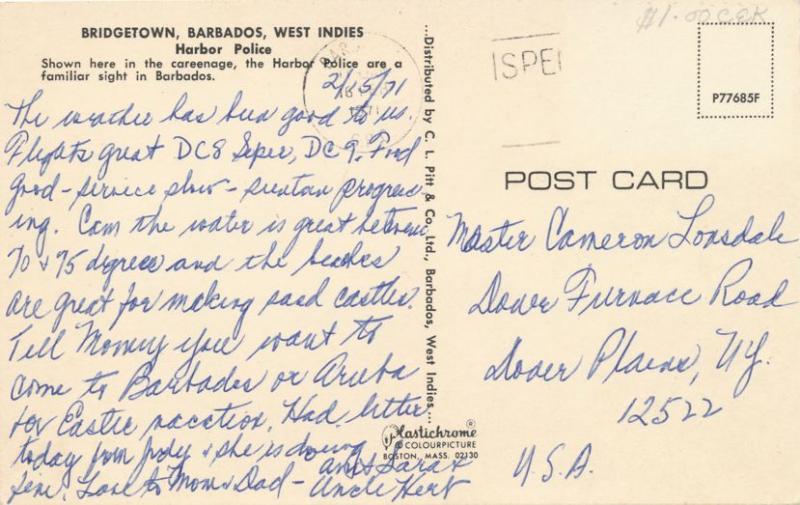 BRIDGETOWN, BARBADOS, WEST INDIES
Harbor Police
Shown here in the careenage, the Harbor Police are a
familiar sight in Barbados.
2/15/71
The weather has been good to us.
Flights great DC8 Super, DC9. Food
good - service slow - suntan progress
ing. Cam the water is great between
70 & 75 degrees and the beaches
are great for making sand castles.
Tell Mommy you want to
come to Barbados or Aruba
for Easter vacation. Had letter
today from Judy & she is doing
fine. Love to Mom & Dad - Aunt Sara &
Uncle Herb
...Distributed by C. L. Pitt & Co., Ltd., Barbados, West Indies...
Plastichrome ®
© COLOURPICTURE
BOSTON, MASS. 02130
$1.00
ISPE
P77685F
POST CARD
Master Cameron Lonsdale
Dover Furnace Road
Dover Plains, NY.
12522
U.S.A.